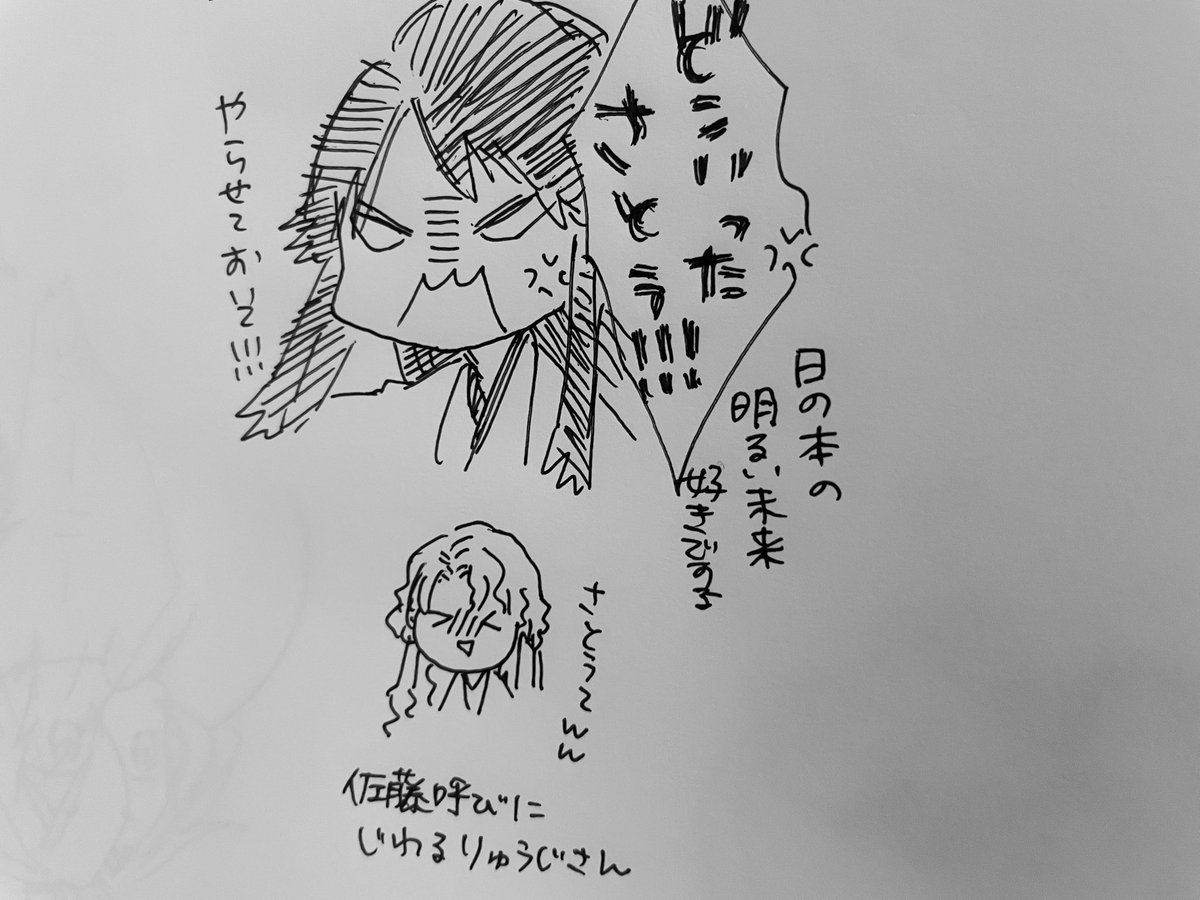 どこいった
さとう!!!
やらせておいて!!!
日の本の
明るい未来
好き
さとうてww
佐藤呼びに
じわるりゅうじさん